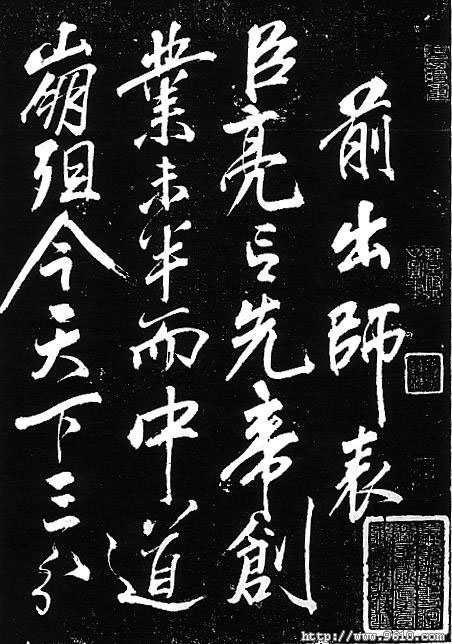 前出師表
臣亮言先帝創
業未半而中道
崩殂今天下三分
http://www.9610.com